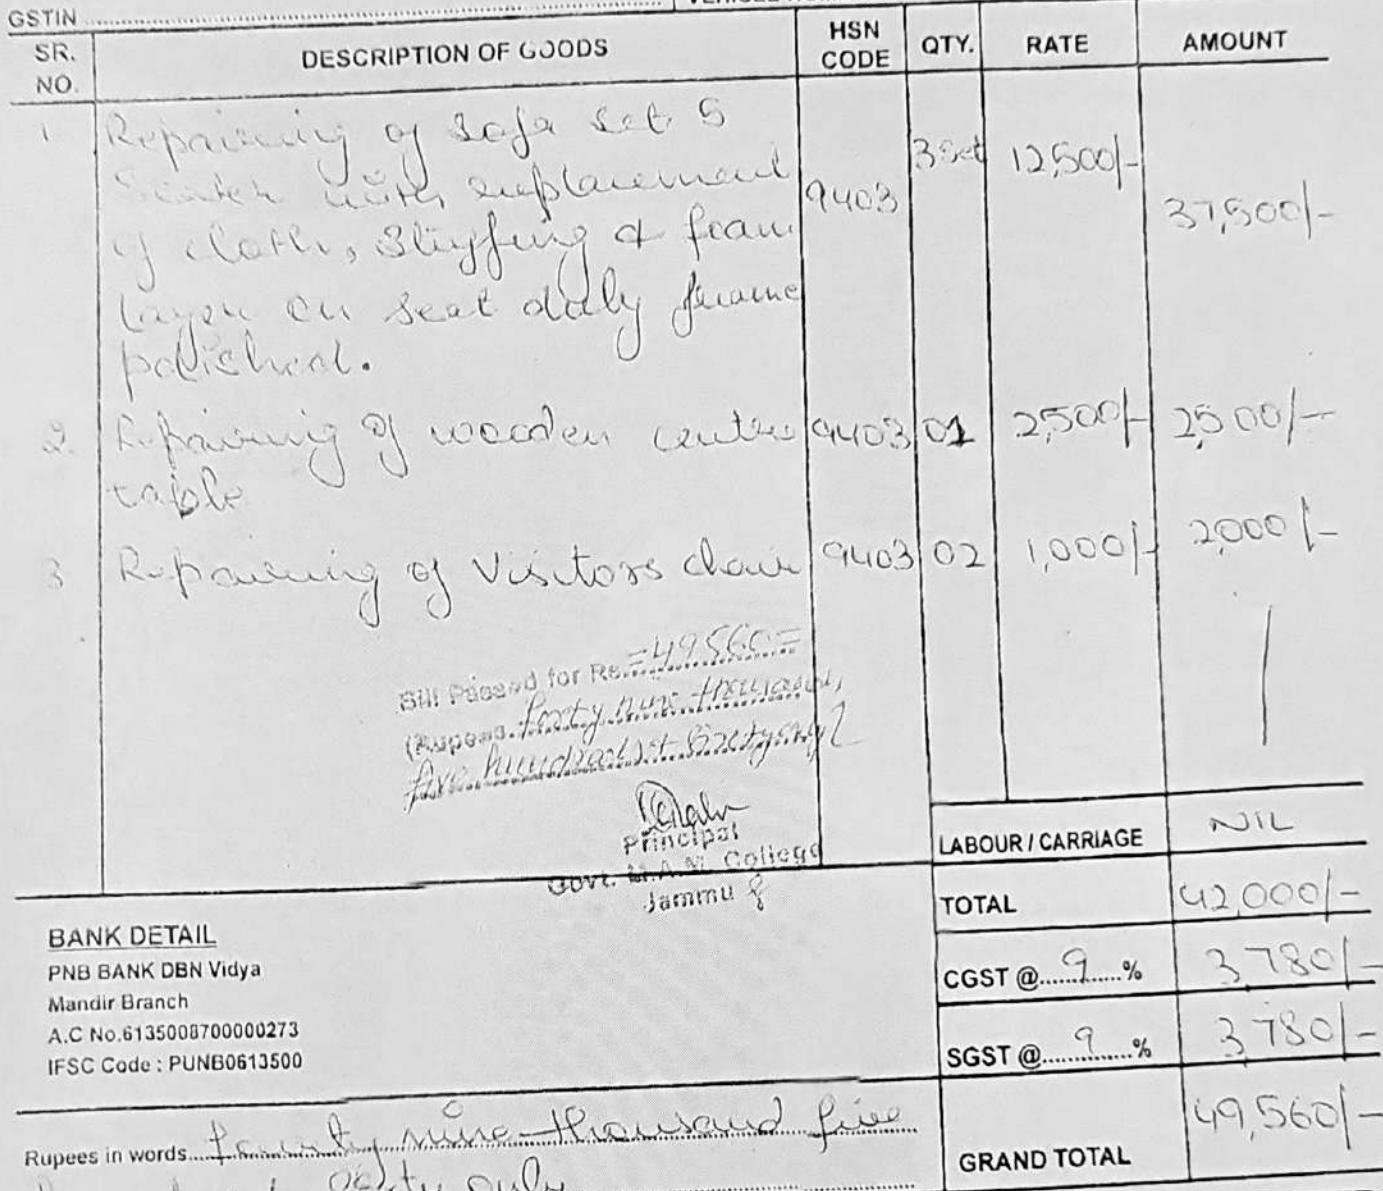 GSTIN
SR. NO. DESCRIPTION OF GOODS HSN CODE QTY. RATE AMOUNT
1 Repairing of Sofa Set 5
Seater with replacement 9403 3 Set 12,500/- 37,500/-
of cloth, Stuffing & foam
layer on seat duly frame
polished.
2. Repairing of wooden centre 9403 01 2,500/- 2,500/-
table
3 Repairing of Visitors chair 9403 02 1,000/- 2,000/-
Bill Passed for Rs. =49560=
(Rupees. forty nine thousand,
five hundred & Sixty only)
Principal
Govt. M.A.M. College
Jammu
LABOUR / CARRIAGE NIL
TOTAL 42,000/-
CGST @ 9 % 3,780/-
SGST @ 9 % 3,780/-
GRAND TOTAL 49,560/-
BANK DETAIL
PNB BANK DBN Vidya
Mandir Branch
A.C No.6135008700000273
IFSC Code : PUNB0613500
Rupees in words fourty nine thousand five
only